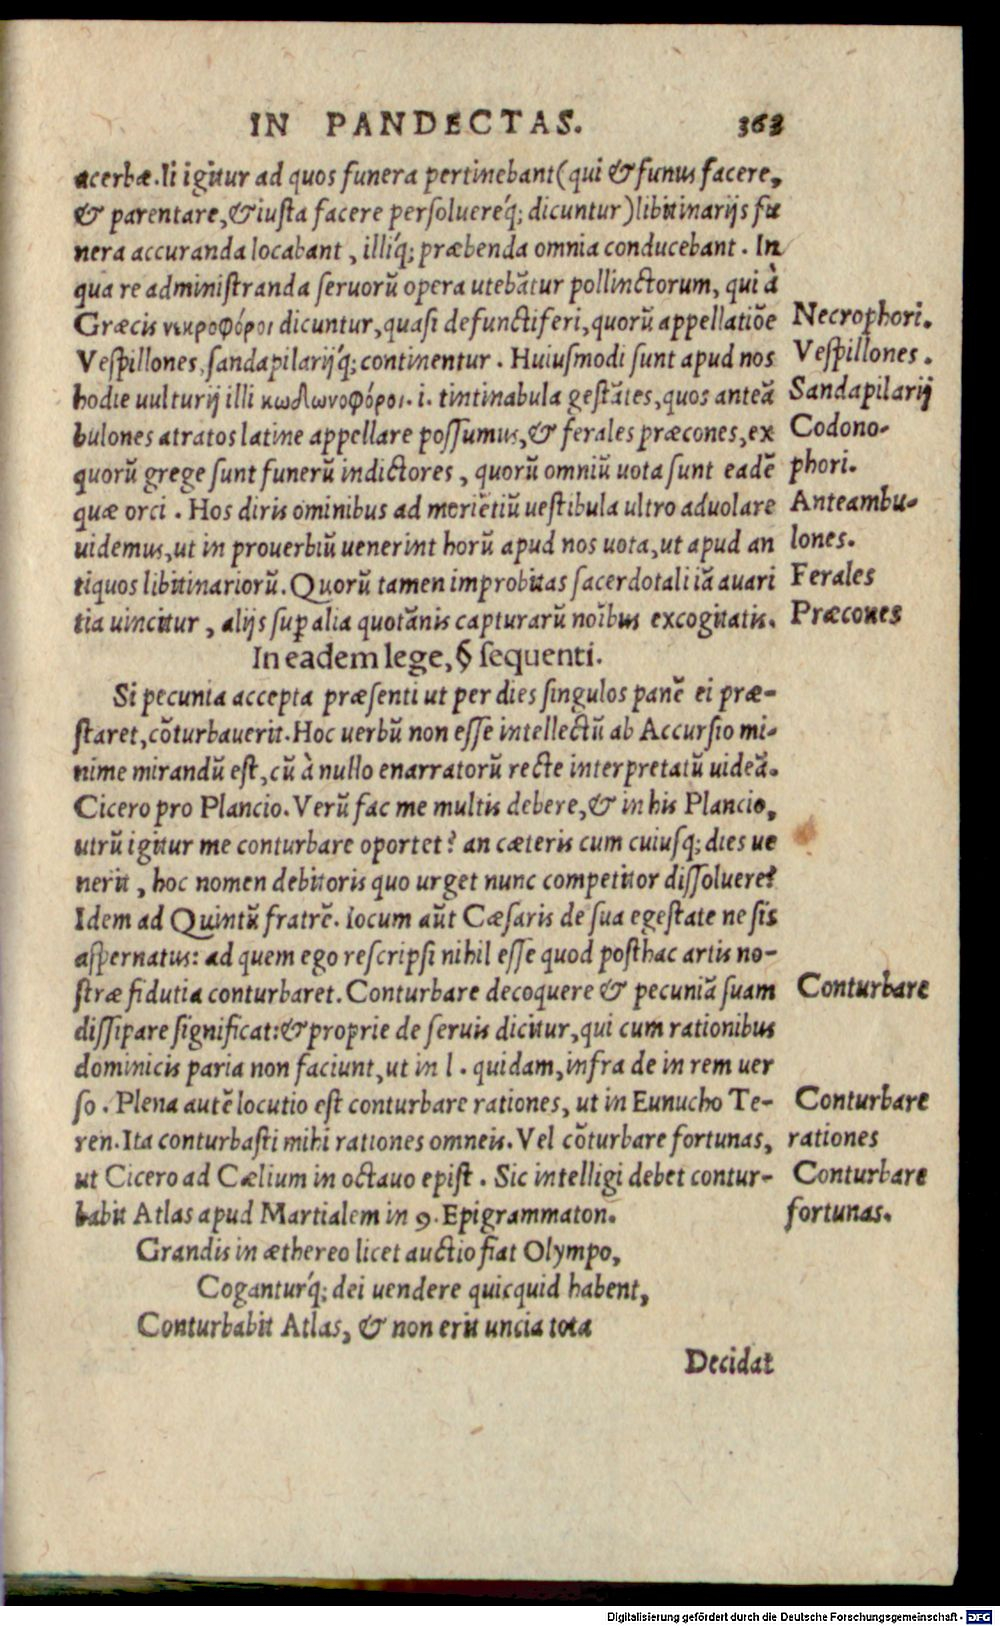 IN PANDECTAS. 363
acerbæ. Ii igitur ad quos funera pertinebant (qui & funus facere,
& parentare, & iusta facere persoluereq́; dicuntur) libitinarijs fu
nera accuranda locabant, illiq́; præbenda omnia conducebant. In
qua re administranda seruorũ opera utebãtur pollinctorum, qui à
Græcis νεκροφόροι dicuntur, quasi defunctiferi, quorũ appellatiõe
Necrophori.
Vespillones, sandapilarijq́; continentur. Huiusmodi sunt apud nos
Vespillones.
hodie uulturij illi κωδωνοφόροι. i. tintinabula gestãtes, quos anteã
Sandapilarij
bulones atratos latine appellare possumus, & ferales præcones, ex
Codono-
quorũ grege sunt funerũ indictores, quorũ omniũ uota sunt eadẽ
phori.
quæ orci. Hos diris ominibus ad moriẽtiũ uestibula ultro aduolare
Anteambu-
uidemus, ut in prouerbiũ uenerint horũ apud nos uota, ut apud an
lones.
tiquos libitinariorũ. Quorũ tamen improbitas sacerdotali iã auari
Ferales
tia uincitur, alijs suꝑ alia quotãnis capturarũ noĩbus excogitatis.
Præcones
In eadem lege, § sequenti.
Si pecunia accepta præsenti ut per dies singulos panẽ ei præ-
staret, cõturbauerit. Hoc uerbũ non esse intellectũ ab Accursio mi-
nime mirandũ est, cũ à nullo enarratorũ recte interpretatũ uideã.
Cicero pro Plancio. Verũ fac me multis debere, & in his Plancio,
utrũ igitur me conturbare oportet? an cæteris cum cuiusq; dies ue
nerit, hoc nomen debitoris quo urget nunc competitor dissoluere?
Idem ad Quintũ fratrẽ. locum aũt Cæsaris de sua egestate ne sis
aspernatus: ad quem ego rescripsi nihil esse quod posthac artis no-
stræ fidutia conturbaret. Conturbare decoquere & pecuniã suam
Conturbare
dissipare significat: & proprie de seruis dicitur, qui cum rationibus
dominicis paria non faciunt, ut in l. quidam, infra de in rem uer
so. Plena autẽ locutio est conturbare rationes, ut in Eunucho Te-
Conturbare
ren. Ita conturbasti mihi rationes omneis. Vel cõturbare fortunas,
rationes
ut Cicero ad Cælium in octauo epist. Sic intelligi debet contur-
Conturbare
babit Atlas apud Martialem in 9. Epigrammaton.
fortunas.
Grandis in æthereo licet auctio fiat Olympo,
Coganturq́; dei uendere quicquid habent,
Conturbabit Atlas, & non erit uncia tota
Decidat
Digitalisierung gefördert durch die Deutsche Forschungsgemeinschaft - DFG